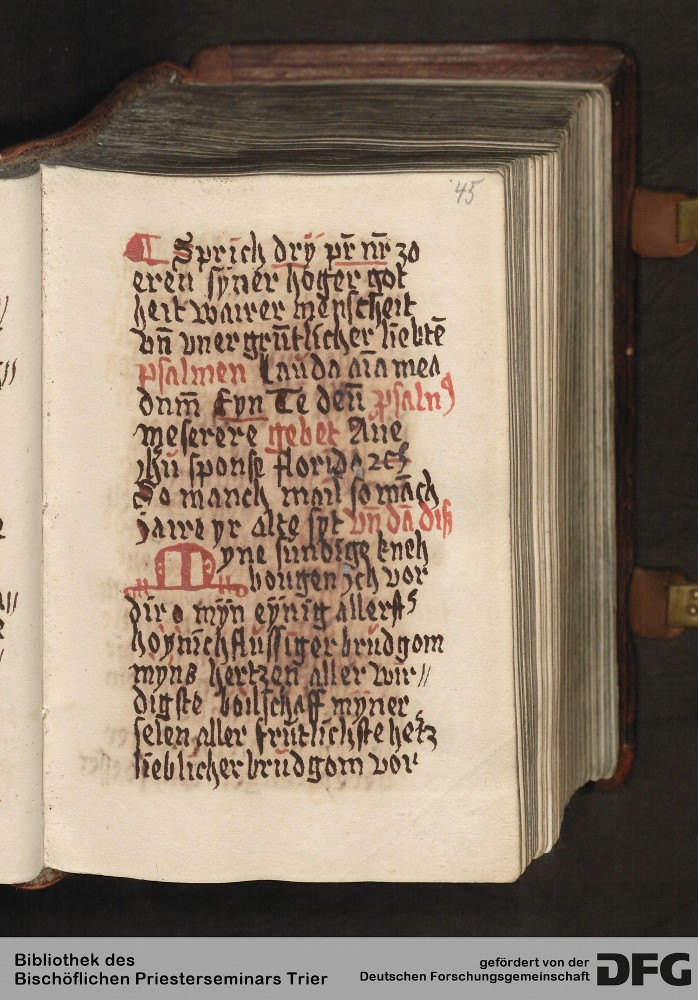 45
Sprich dry pr̄ nr̄ zo
eren syner hoger got
heit wairer menscheit
vn̄ vnergru̅tlicher liebte̅
psalmen Lauda aīa mea
dnm̄ Eyn Te deū psalm9
meserere gebet Aue
jhū sponse florida ꝛc
So manch mail so ma̅ch
jaire yr alte syt vn̄ da̅ diß
Myne sundige kneh
bougen ich vor
dir o myn eynig allerst
hoynichflussiger brudgom
myns hertzen aller wir//
digste boilschaff myner
selen aller frutlichste hetz
lieblicher brudgom vor
Bibliothek des
Bischöflichen Priesterseminars Trier
gefördert von der
Deutschen Forschungsgemeinschaft
DFG